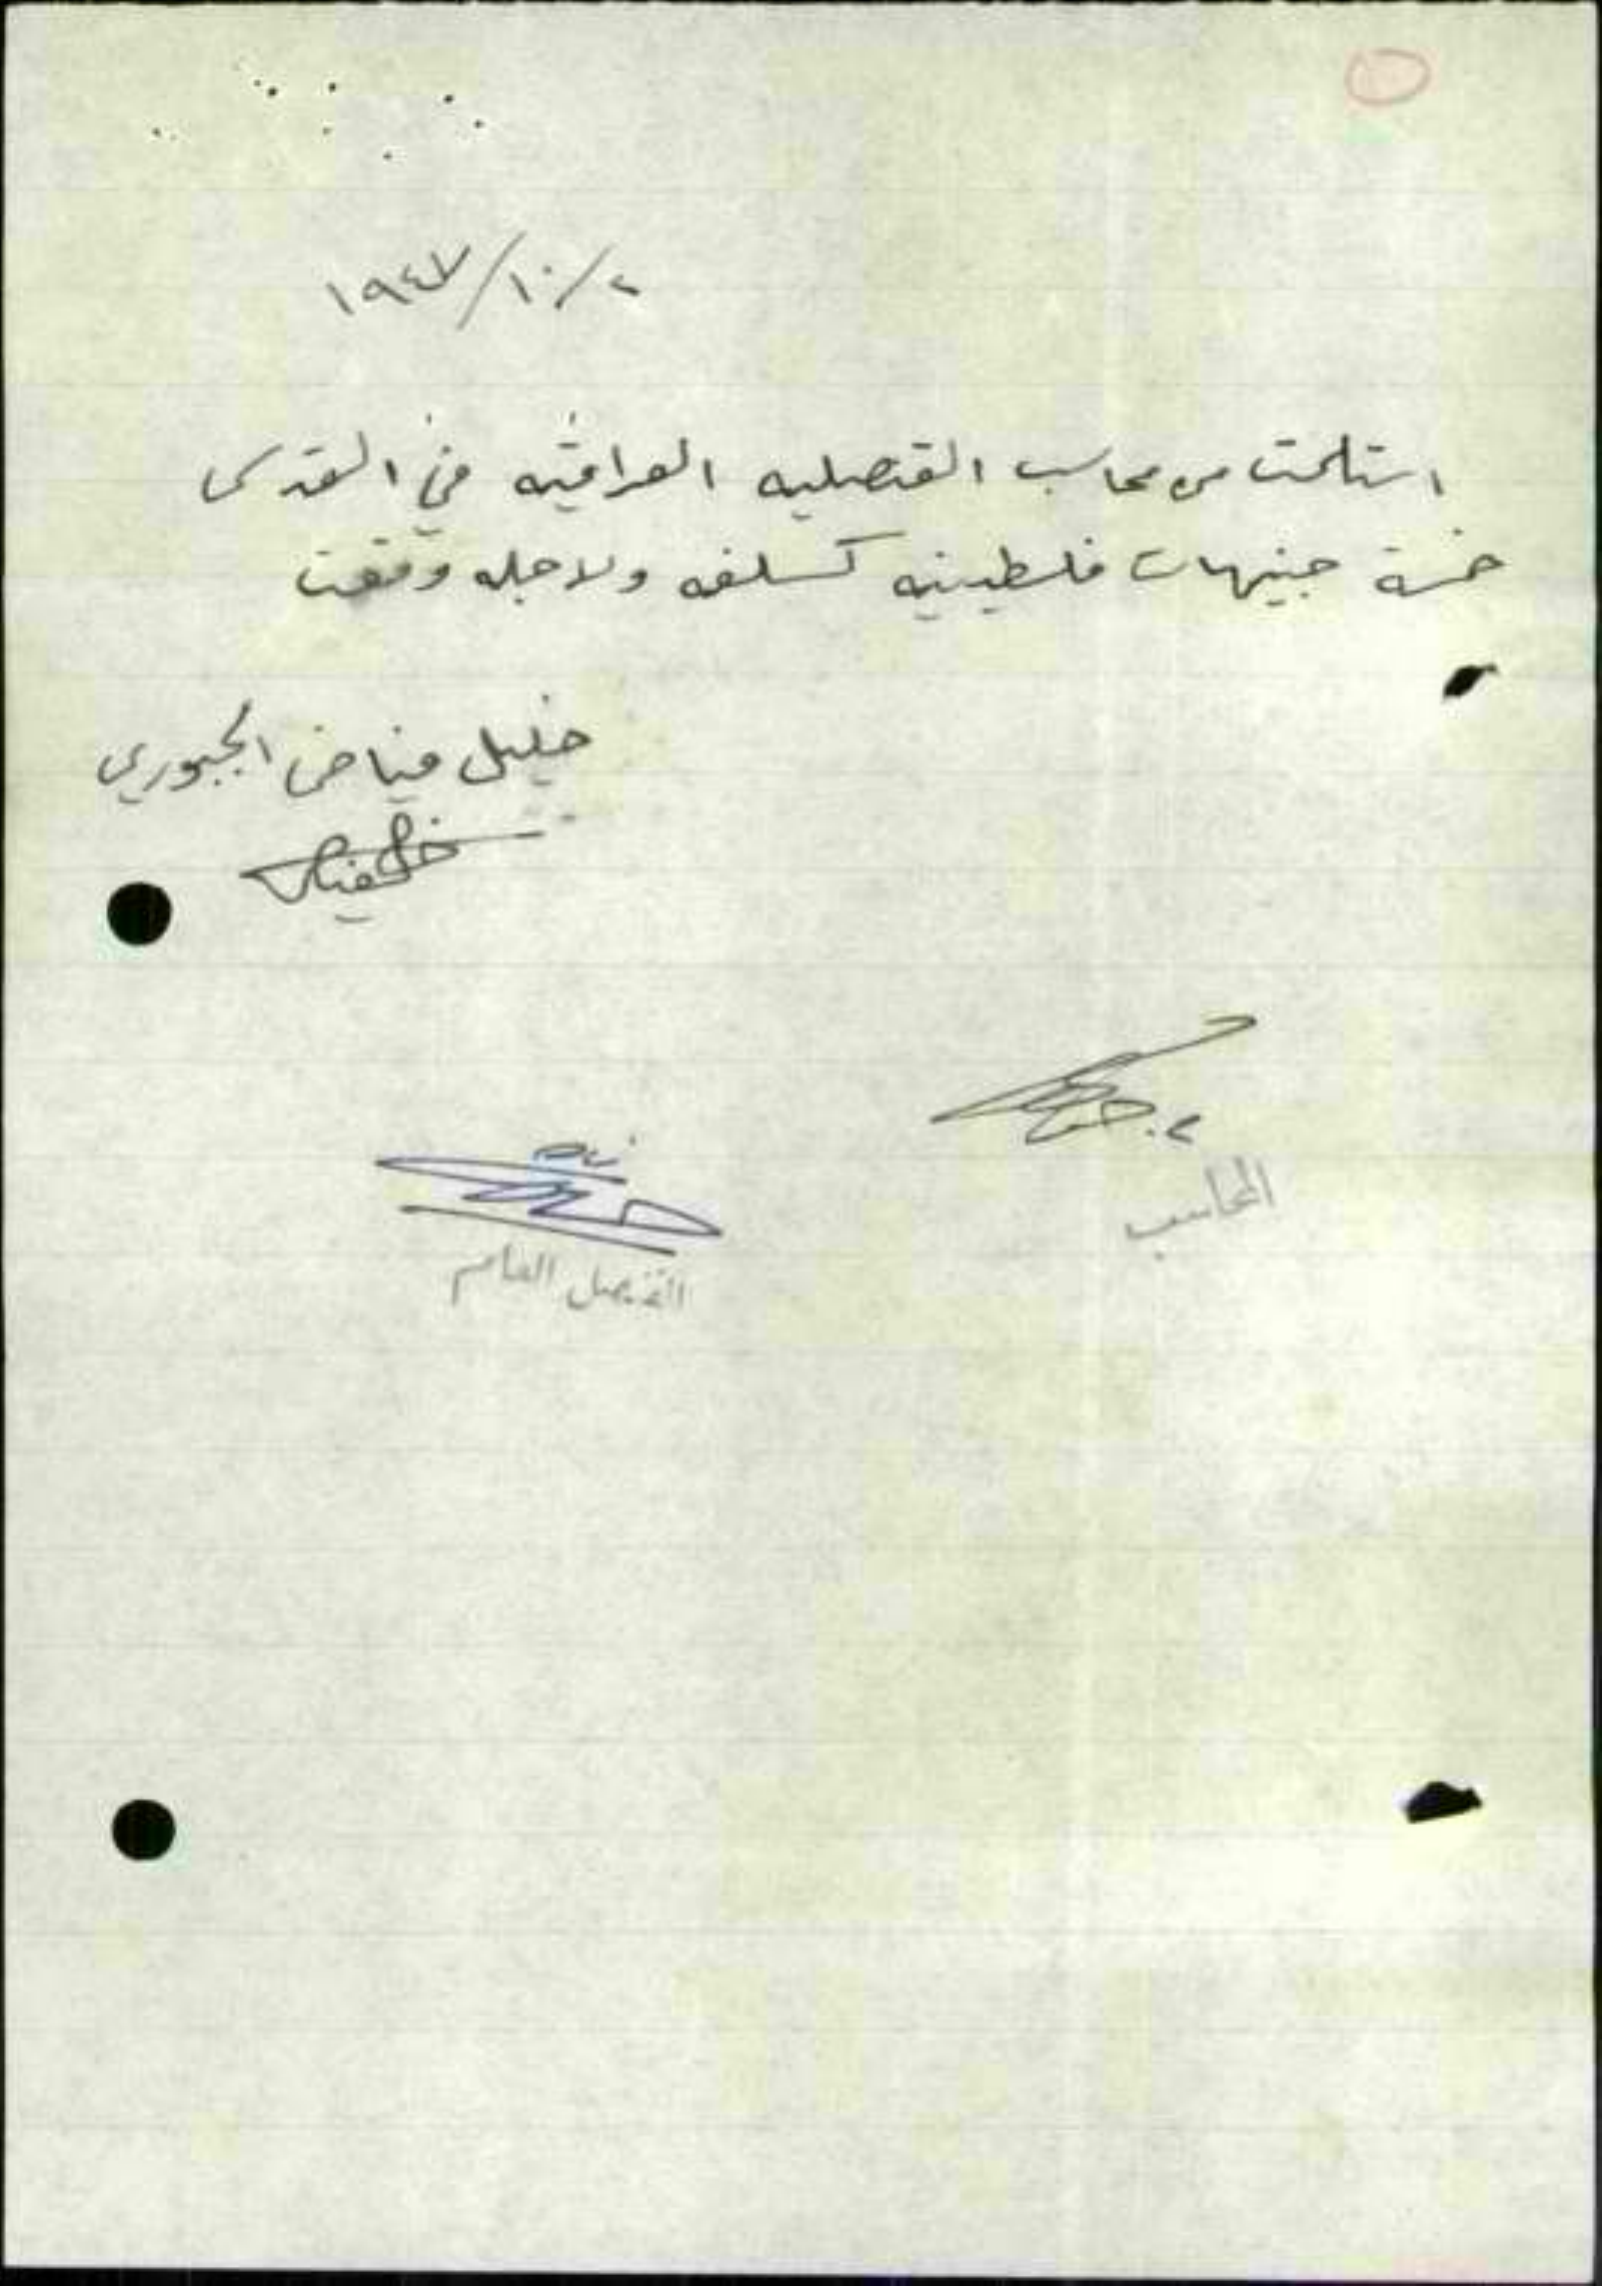 ١٩٤٧/١٠/٢
استلمت من محاسب القنصليه العراقيه في القدس
خمسة جنيهات فلسطينيه كسلفه ولاجله وقعت
خليل فياض الجبوري
المحاسب
القنصل العام